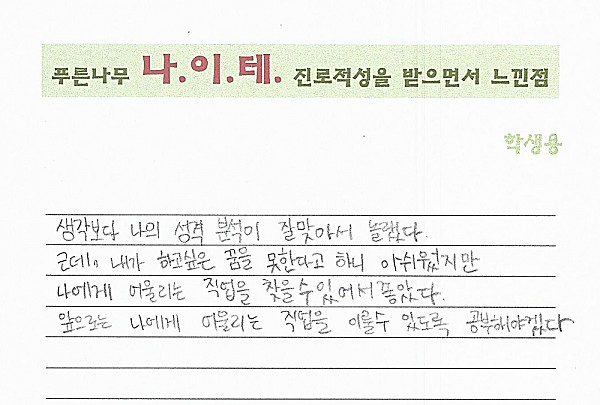 푸른나무 나.이.테. 진로적성을 받으면서 느낀점
학생용
생각보다 나의 성격 분석이 잘맞아서 놀랬다.
근데, 내가 하고싶은 꿈을 못한다고 하니 아쉬웠지만
나에게 어울리는 직업을 찾을수있어서 좋았다.
앞으로는 나에게 어울리는 직업을 이룰수 있도록 공부해야겠다.